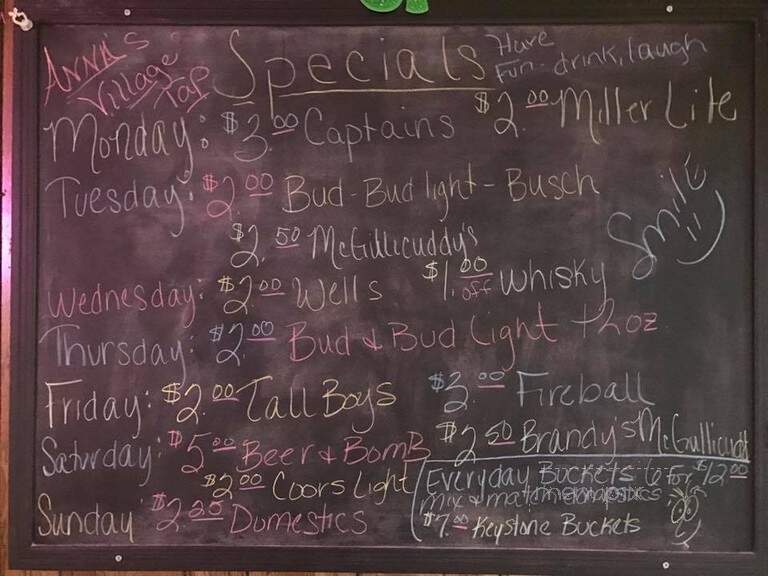 ANNA'S Village Tap
Specials
Have Fun - drink, laugh
Monday: $3.00 Captains $2.00 Miller Lite
Tuesday: $2.00 Bud - Bud light - Busch
$2.50 McGillicuddy's
Smile
Wednesday: $2.00 Wells $1.00 off Whisky
Thursday: $2.00 Bud & Bud Light 12oz
Friday: $2.00 Tall Boys $2.00 Fireball
Saturday: $5.00 Beer & Bomb $2.50 Brandy's McGullicudt
$2.00 Coors Light
Sunday $2.00 Domestics
Everyday Buckets 6 for $12.00
Mix & match domestics
$7.00 Keystone Buckets